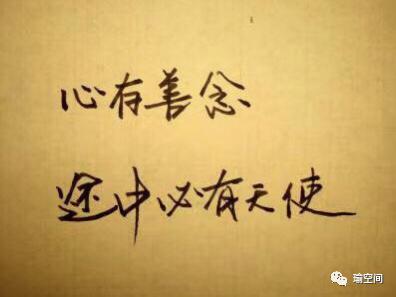 心存善念
途中必有天使
瑜空间